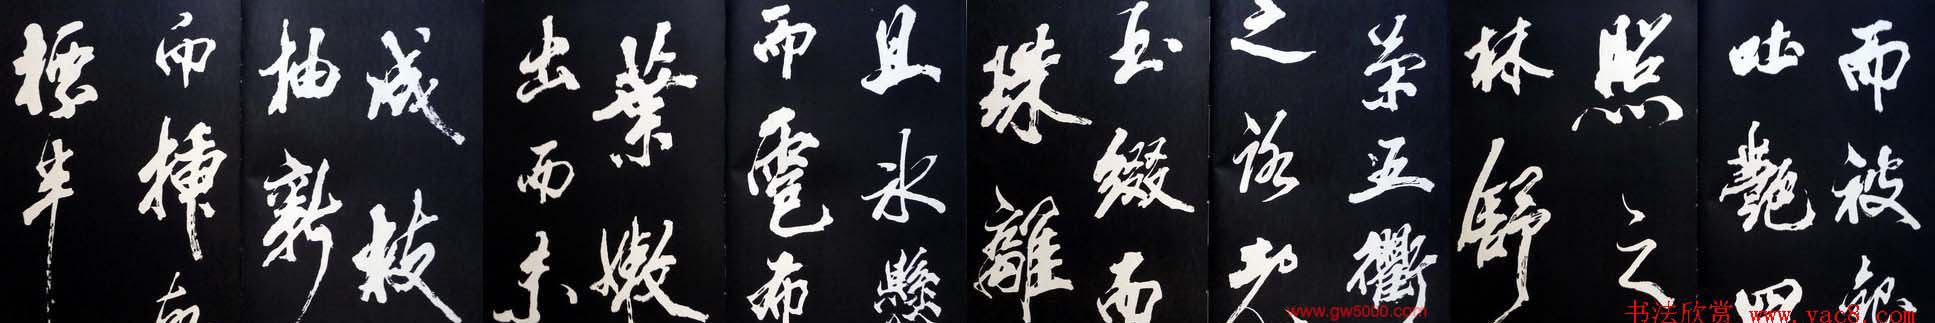 而被銀
吐艷四
照之
林舒
榮五衢
之路既
玉綴而
珠離
且氷懸
而雹布
葉嫩
出而未
成枝
抽新
而插故
標半
www.gw5000.com
书法欣赏 www.yac8.com